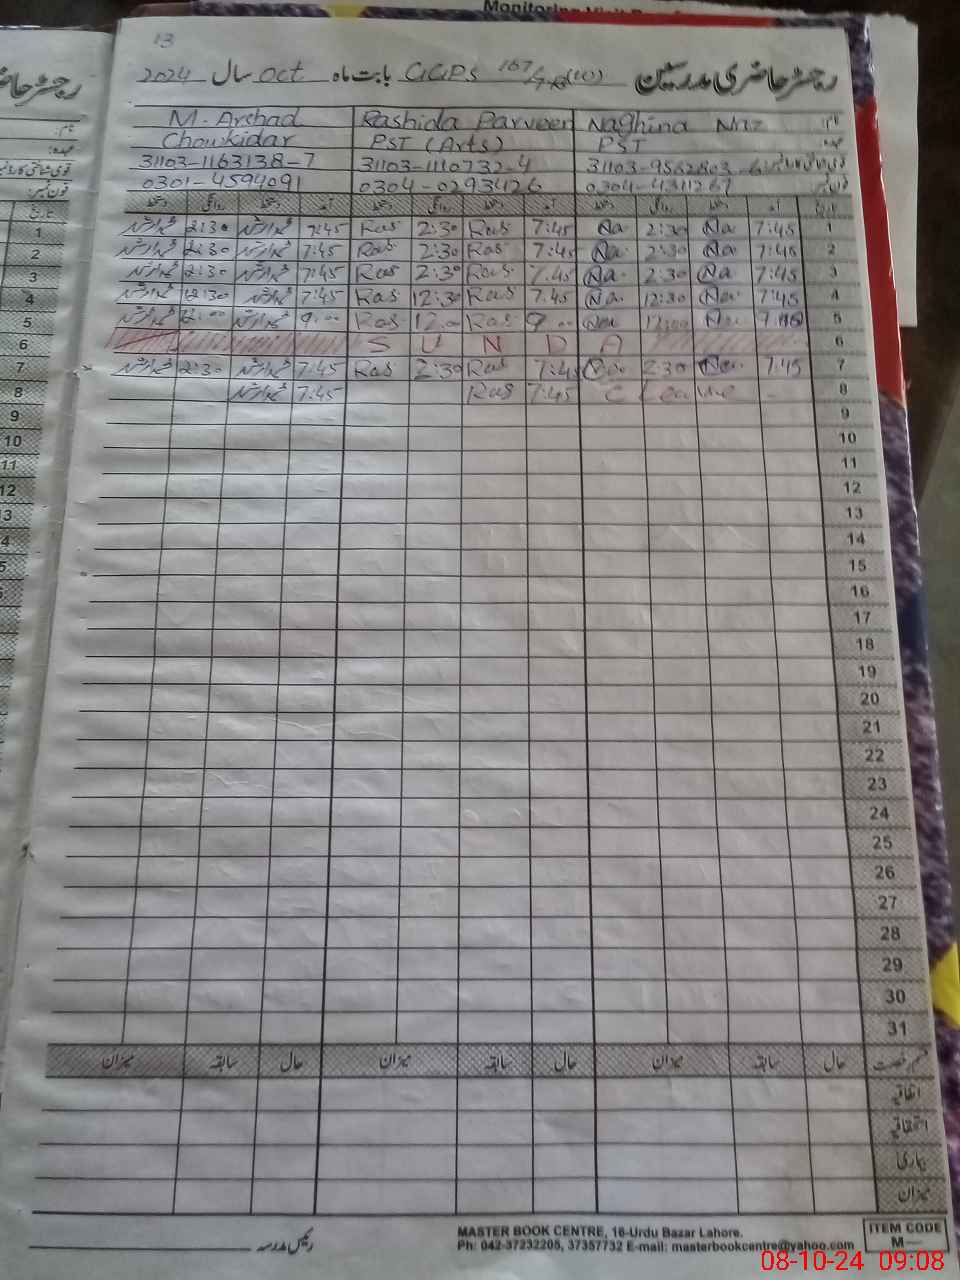 Monitoring Visit
13
رجسٹر حاضری مدرسین GGPS 167/7-R(10) بابت ماہ Oct سال 2024
نام: Naghina Naz Rashida Parveen M. Arshad
عہدہ: PST PST (Arts) Chowkidar
31103-1110732-4 31103-1163138-7
فون نمبر: 0304-4311267 0304-0293426 0301-4594091
تاریخ آمد دستخط روانگی دستخط آمد دستخط روانگی دستخط آمد دستخط روانگی دستخط
1 7:45 Na 2:30 Na 7:45 Ras 2:30 Ras 7:45 2:30 1
2 7:45 Na 2:30 Na 7:45 Ras 2:30 Ras 7:45 2:30 2
3 7:45 Na 2:30 Na 7:45 Ras 2:30 Ras 7:45 2:30 3
4 7:45 Na 12:30 Na 7:45 Ras 12:30 Ras 7:45 12:30 4
5 Na 12:00 Na 9:00 Ras 12:00 Ras 9:00 12:00 5
6 S U N D A 6
7 7:45 Na 2:30 7:45 Ras 2:30 Ras 7:45 2:30 7
8 C Leave 7:45 Ras 7:45 8
9 9
10 10
11 11
12 12
13 13
14 4
15 5
16
17
18
19
20
21
22
23
24
25
26
27
28
29
30
31
قسم رخصت حال سابقہ میزان حال سابقہ میزان حال سابقہ میزان
اتفاقیہ
استحقاقیہ
بیماری
میزان
رئیس مدرسہ
MASTER BOOK CENTRE, 16-Urdu Bazar Lahore.
Ph: 042-37232205, 37357732 E-mail: masterbookcentre@yahoo.com
ITEM CODE
M—
08-10-24 09:08